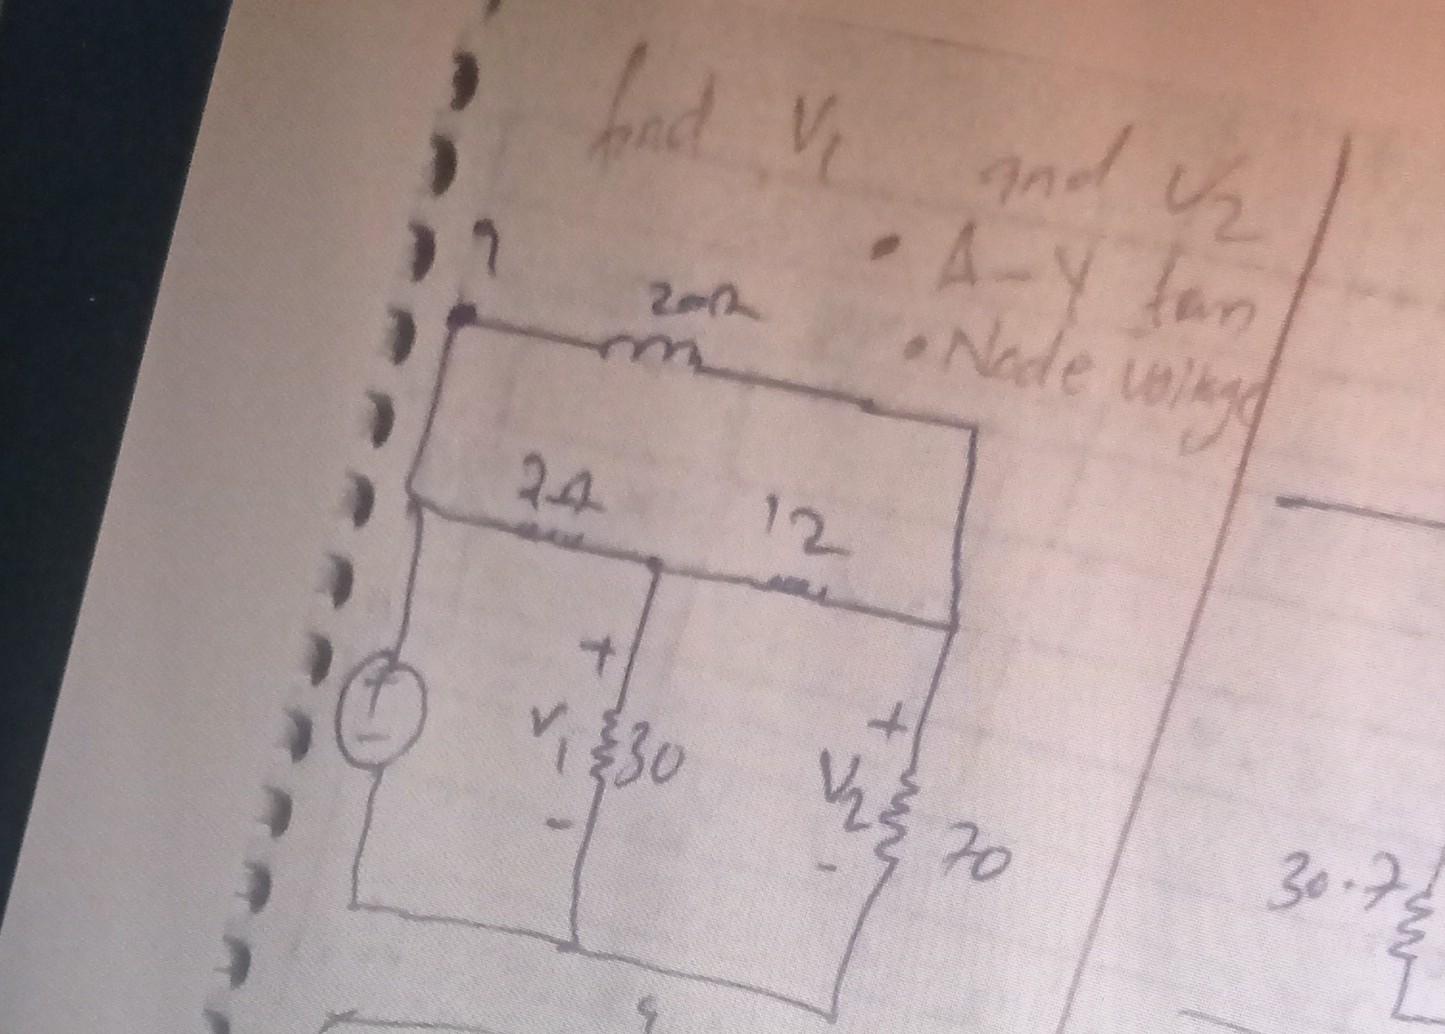 find V1 and V2
• Δ-Y tan
• Node voltage
20Ω
24
12
+
+
-
+
V1
30
-
V2
70
-
30.7